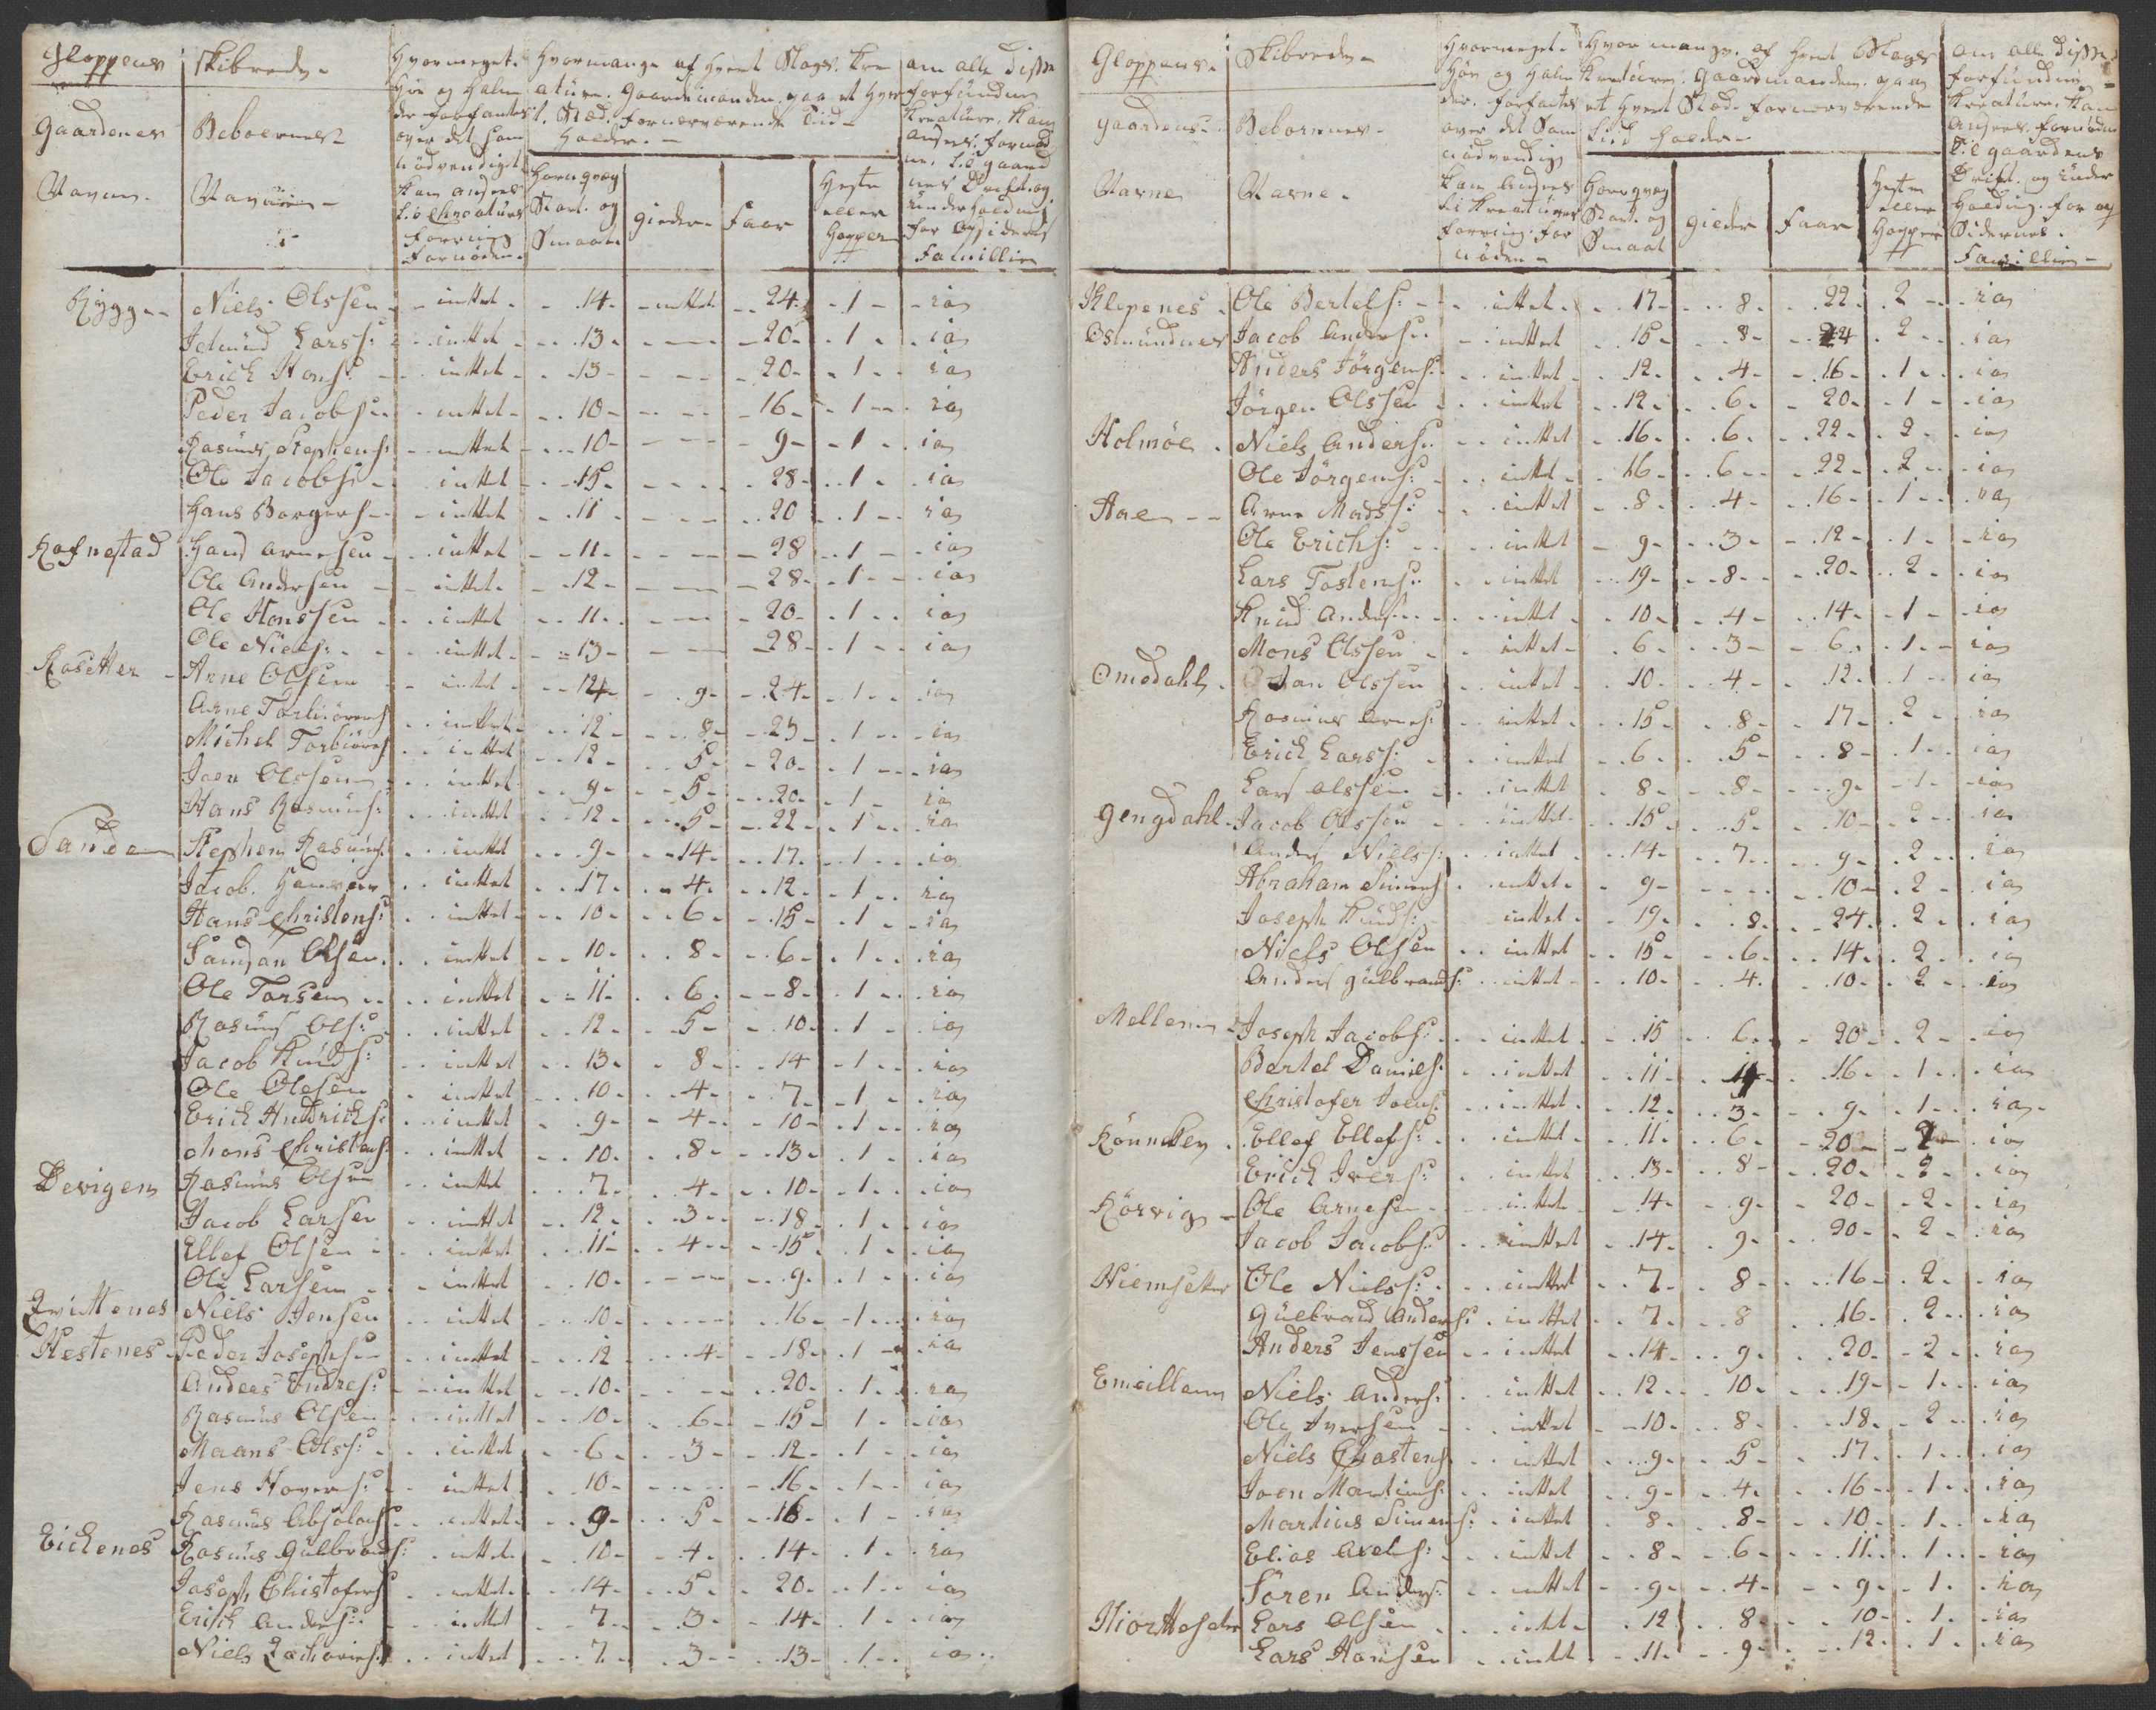 Gloppens Skibrede
Gaardenes Beboernes
Navne. Navne
Hvormeget Høe og Halm der forfantes over det som nödvendigt kan ansees til Creaturs forring fornöden.
Hvormange af hvert Slags Creature Gaardmanden paa et hvert Sted fornærværende Tiid holder.
Hornqvæg Stort og Smaat
gieder
Faar
Heste eller Hopper
om alle disse forfundne Kreature kan ansees fornöden til gaardenes Drift og underholdning for opsidernes Famillier
Rygg Niels Olssen intet 14 intet 24 1 ia
Jelmund Larss: intet 13 20 1 ia
Erich Hans: intet 13 20 1 ia
Peder Jacobs: intet 10 16 1 ia
Rasmus Stephens: intet 10 9 1 ia
Ole Jacobs: intet 15 28 1 ia
Hans Borgers: intet 11 20 1 ia
Rafnestad Hans Arnesen intet 11 28 1 ia
Ole Andersen intet 12 28 1 ia
Ole Hanssen intet 11 20 1 ia
Ole Niels: intet 13 28 1 ia
Rosetter Arne Olssen intet 12 9 24 1 ia
Arne Torbiörns intet 12 8 23 1 ia
Michel Torbiörns intet 12 5 20 1 ia
Joen Olssen intet 9 5 20 1 ia
Hans Rasmus: intet 12 5 22 1 ia
Sande Stephen Rasmus: intet 9 14 17 1 ia
Jacob Hansen intet 17 4 12 1 ia
Hans Christens: intet 10 6 15 1 ia
Samson Olsen intet 10 8 6 1 ia
Ole Torsen intet 11 6 8 1 ia
Rasmus Ols: intet 12 5 10 1 ia
Jacob Knuds: intet 13 8 14 1 ia
Ole Olesen intet 10 4 7 1 ia
Erich Hindrichs: intet 9 4 10 1 ia
Mons Christens: intet 10 8 13 1 ia
Devigen Rasmus Olsen intet 7 4 10 1 ia
Jacob Larsen intet 12 3 18 1 ia
Ellef Olsen intet 11 4 15 1 ia
Ole Larsen intet 10 9 1 ia
Qvittenes Niels Jensen intet 10 16 1 ia
Hestenes Peder Josephsen intet 12 4 18 1 ia
Anders Endres: intet 10 20 1 ia
Rasmus Olsen intet 10 6 15 1 ia
Maans Olss: intet 6 3 12 1 ia
Jens Hovers: intet 10 16 1 ia
Rasmus Absolons: intet 9 5 16 1 ia
Eickenes Rasmus Gulbrands: intet 10 4 14 1 ia
Joseph Christofers: intet 14 5 20 1 ia
Erich Anders: intet 7 3 14 1 ia
Niels Zacharies: intet 7 3 13 1 ia
Gloppens Skibrede
gaardens Beboernes
Navne Navne
Hvormeget Höe og Halm der forfantes over det Som nödvendig kan Ansees til Kreaturers forring fornöden
Hvor mange af hvert Slags Kreaturer Gaardmanden paa et hvert Sted fornerværende tiid holder
Hornqvæg Stort og Smaat
gieder
Faar
Heste eller Hopper
om alle disse forfundne Kreature kan Ansees fornöden til gaardens Drift og underholding for op Sidernes Famillier
Klepenes Ole Bertels: intet 17 8 22 2 ia
Osmundnes Jacob Anders: intet 15 8 24 2 ia
Anders Jörgens: intet 12 4 16 1 ia
Jörgen Olssen intet 12 6 20 1 ia
Holmöe Niels Anders: intet 16 6 22 2 ia
Ole Jörgens: intet 16 6 22 2 ia
Aae Arne Madss: intet 8 4 16 1 ia
Ole Erichs: intet 9 3 12 1 ia
Lars Tostens: intet 19 8 20 2 ia
Knud Anders: intet 10 4 14 1 ia
Mons Olssen intet 6 3 6 1 ia
Omdahl Jan Olssen intet 10 4 12 1 ia
Rasmus Arnes: intet 15 8 17 2 ia
Erich Larss: intet 6 5 8 1 ia
Lars Olssen intet 8 8 9 1 ia
Gengdahl Jacob Olssen intet 15 5 10 2 ia
Anders Nielss: intet 14 7 9 2 ia
Abraham Simens intet 9 10 2 ia
Joseph Knuds: intet 19 8 24 2 ia
Niels Olsen intet 15 6 14 2 ia
Anders Gulbrands: intet 10 4 10 2 ia
Mellem Joseph Jacobs: intet 15 6 20 2 ia
Bertel Daniels: intet 11 4 16 1 ia
Christofer Joens: intet 12 3 9 1 ia
Rönneklev Ellef Ellefs: intet 11 6 20 2 ia
Erich Ivers: intet 13 8 20 2 ia
Rörvig Ole Arnesen intet 14 9 20 2 ia
Jacob Jacobs: intet 14 9 20 2 ia
Hiemseter Ole Nielss: intet 7 8 16 2 ia
Gulbrand Anders: intet 7 8 16 2 ia
Anders Jenssen intet 14 9 20 2 ia
Emeillem Niels Anders: intet 12 10 19 1 ia
Ole Iversen intet 10 8 18 2 ia
Niels Chastens: intet 9 5 17 1 ia
Joen Martins: intet 9 4 16 1 ia
Martius Simens: intet 8 8 10 1 ia
Elias Axels: intet 8 6 11 1 ia
Sören Anders: intet 9 4 9 1 ia
Hiorteseter Lars Olsen intet 12 8 10 1 ia
Lars Hansen intet 11 9 12 1 ia